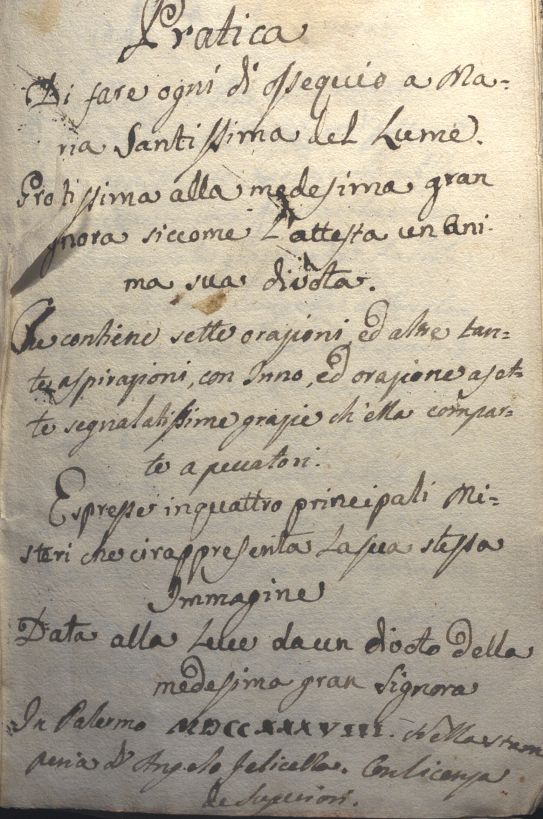 Pratica
Di fare ogni dì ossequio a Ma-
ria Santissima del Lume.
Gratissima alla medesima gran
gnora siccome l'attesta un ani-
ma sua divota.
Che contiene sette orazioni, ed altre tan-
te aspirazioni, con Inno, ed orazione a set-
te segnalatissime grazie ch'ella compar-
te a peccatori.
Espresse in quattro principali Mi-
steri che ci rappresenta la sua stessa
Immagine
Data alla Luce da un divoto della
medesima gran Signora
In Palermo MDCCXXXVIII. nella stam
peria d' Angelo Felicella. Con licenza
de Superiori.